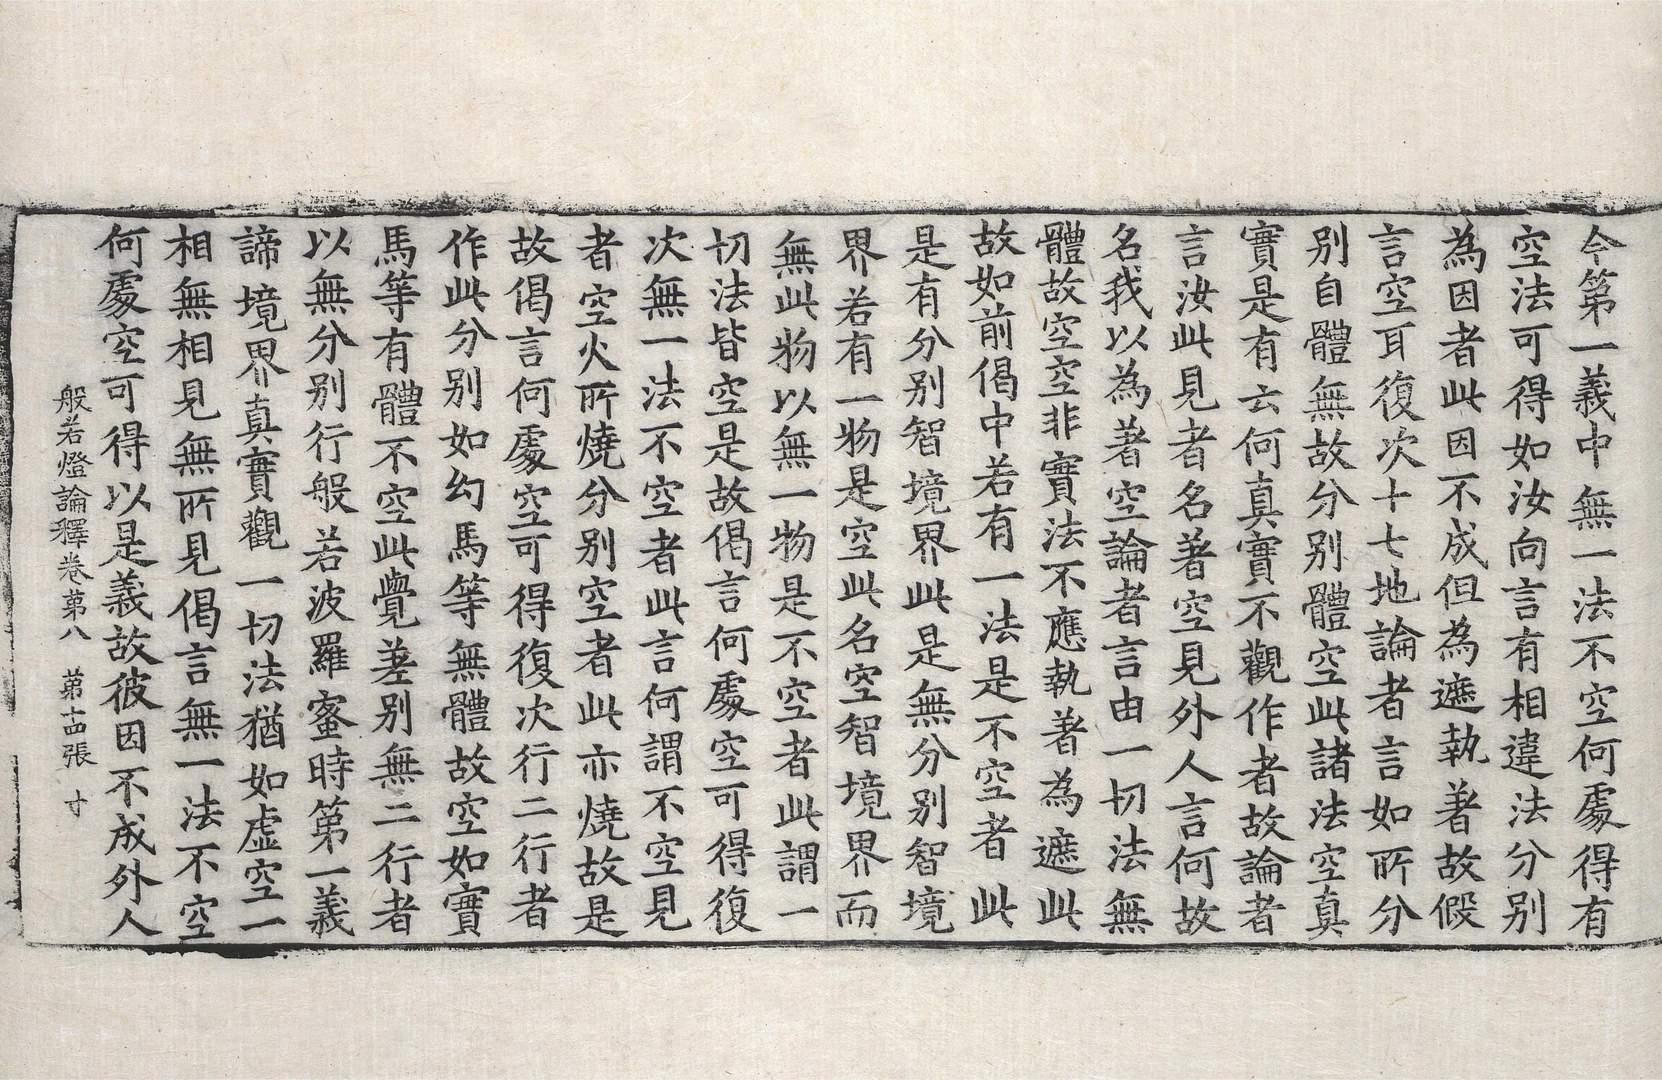 今第一義中無一法不空何處得有
空法可得如汝向言有相違法分别
為因者此因不成但為遮執著故假
言空耳復次十七地論者言如所分
别自體無故分别體空此諸法空真
實是有云何真實不觀作者故論者
言汝此見者名著空見外人言何故
名我以為著空論者言由一切法無
體故空空非實法不應執著為遮此
故如前偈中若有一法是不空者此
是有分别智境界此是無分别智境
界若有一物是空此名空智境界而
無此物以無一物是不空者此謂一
切法皆空是故偈言何處空可得復
次無一法不空者此言何謂不空見
者空火所燒分别空者此亦燒故是
故偈言何處空可得復次行二行者
作此分别如幻馬等無體故空如實
馬等有體不空此覺差别無二行者
以無分别行般若波羅蜜時第一義
諦境界真實觀一切法猶如虚空一
相無相見無所見偈言無一法不空
何處空可得以是義故彼因不成外人
般若燈論釋卷第八 第十四張 寸